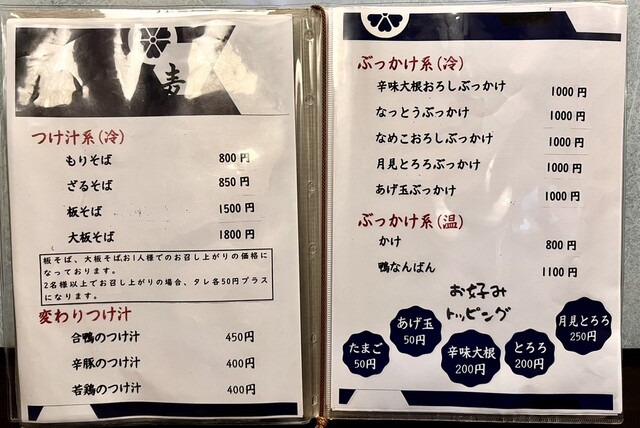 つけ汁系(冷)
もりそば 800円
ざるそば 850円
板そば 1500円
大板そば 1800円
板そば、大板そばお1人様でのお召し上がりの価格に
なっております。
2名様以上でお召し上がりの場合、タレ各50円プラス
になります。
変わりつけ汁
合鴨のつけ汁 450円
辛豚のつけ汁 400円
若鶏のつけ汁 400円
ぶっかけ系(冷)
辛味大根おろしぶっかけ 1000円
なっとうぶっかけ 1000円
なめこおろしぶっかけ 1000円
月見とろろぶっかけ 1000円
あげ玉ぶっかけ 1000円
ぶっかけ系(温)
かけ 800円
鴨なんばん 1100円
お好み
トッピング
たまご
50円
あげ玉
50円
辛味大根
200円
とろろ
200円
月見とろろ
250円